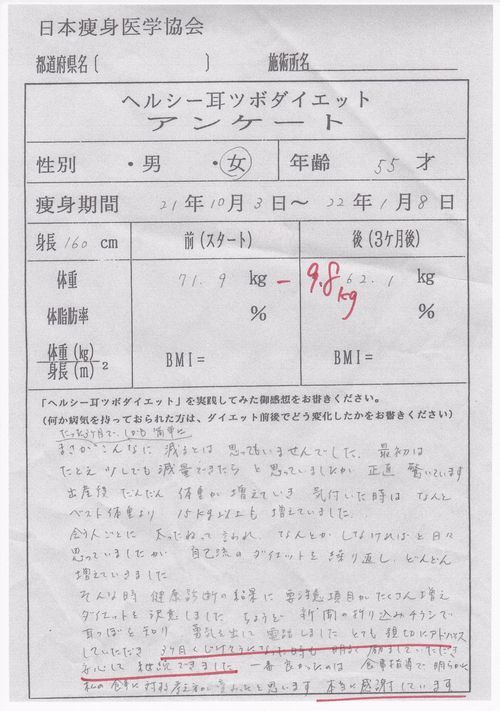 日本痩身医学協会
都道府県名〔 〕 施術所名
ヘルシー耳ツボダイエット
アンケート
性別 ・男 ・女 年齢 55 才
痩身期間 21年10月3日～22年1月8日
身長 160 cm 前(スタート) 後(3ケ月後)
体重 71.9 kg －9.8kg 62.1 kg
体脂肪率 % %
体重(kg)
身長(m) 2 BMI＝ BMI＝
「ヘルシー耳ツボダイエット」を実践してみた御感想をお書きください。
(何か病気を持っておられた方は、ダイエット前後でどう変化したかをお書きください)
たった3ヶ月で、しかも簡単に
まさかこんなに 減るとは 思ってもいませんでした. 最初は
たとえ 少しでも 減量できたら と思っていましたが 正直 驚いています
出産後 だんだん 体重が 増えていき 気付いた時は なんと
ベスト体重より 15kg以上も 増えていました.
会う人ごとに 太ったねって言われ、なんとかしなければと日々
思っていましたが 自己流のダイエットを繰り返し、どんどん
増えていきました
そんな時 健康診断の結果に 要注意項目がたくさん増え
ダイエットを決意しました ちょうど 新聞の折り込みチラシで
耳つぼを知り 勇気を出して 電話しました とても 親切にアドバイス
していただき 3ヶ月くじけそうになった時も 明るく 励ましていただき
安心して 継続できました 一番良かったのは 食事指導で 明らかに
私の食事に対する考え方が変わったと思います 本当に感謝しています